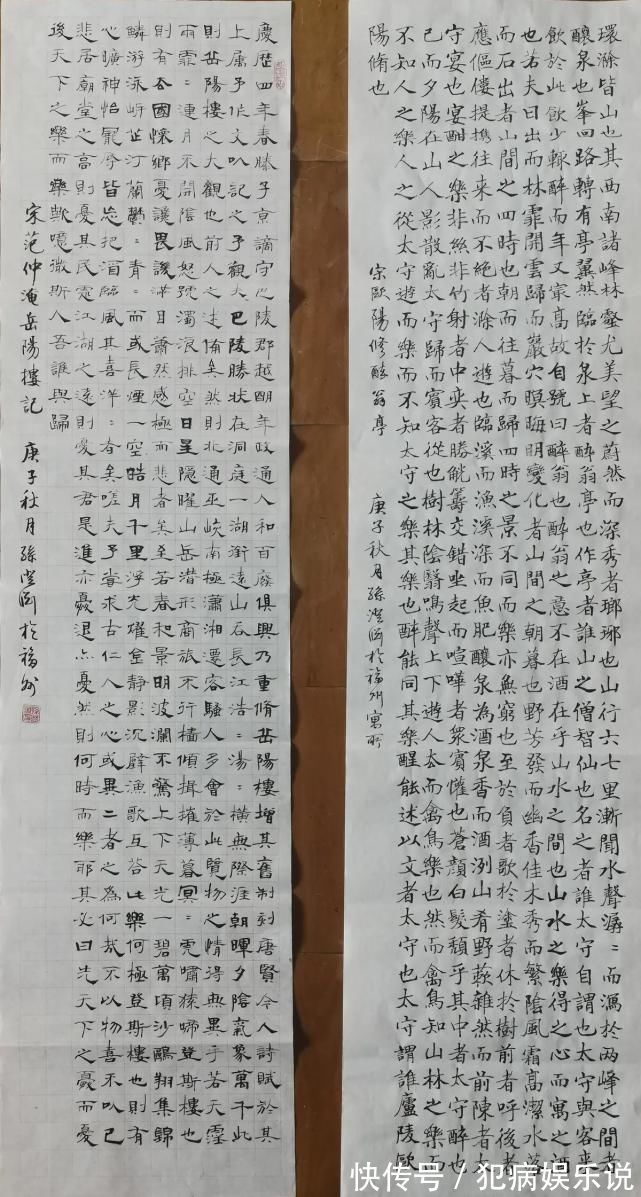 環滁皆山也其西南諸峰林壑尤美望之蔚然而深秀者瑯琊也山行六七里漸聞水聲潺〻而瀉於兩峰之間者
釀泉也峯回路轉有亭翼然臨於泉上者醉翁亭也作亭者誰山之僧智仙也名之者誰太守自謂也太守與客来
飲於此飲少輒醉而年又㝡髙故自號曰醉翁也醉翁之意不在酒在乎山水之間也山水之樂得之心而寓之酒
也若夫日出而林霏開雲歸而巖穴暝晦明變化者山間之朝暮也野芳發而幽香佳木秀而繁陰風霜高潔水落
而石出者山間之四時也朝而往暮而歸四時之景不同而樂亦無窮也至於負者歌於塗者休於樹前者呼後者
應傴僂提携往来而不絕者滁人遊也臨溪而漁溪深而魚肥釀泉為酒泉香而酒洌山肴野蔌雜然而前陳者太
守宴也宴酣之樂非絲非竹射者中奕者勝觥籌交錯坐起而喧嘩者衆賓懽也蒼顏白髮頹乎其中者太守醉也
已而夕陽在山人影散亂太守歸而賓客從也樹林陰翳鳴聲上下遊人去而禽鳥樂也然而禽鳥知山林之樂而
不知人之樂人之從太守遊而樂而不知太守之樂其樂也醉能同其樂醒能述以文者太守也太守謂誰廬陵歐
陽脩也
宋歐陽修醉翁亭 庚子秋月孫澄於福州寓所
慶歷四年春滕子京謫守巴陵郡越明年政通人和百廢俱興乃重脩岳陽樓增其舊制刻唐賢令人詩賦於其
上属予作文以記之予觀夫巴陵勝狀在洞庭一湖銜遠山吞長江浩〻湯〻橫無際涯朝暉夕陰氣象萬千此
則岳陽樓之大觀也前人之述備矣然則北通巫峽南極瀟湘遷客騷人多會於此覽物之情得無異乎若夫霪
雨霏〻連月不開陰風怒號濁浪排空日星隱曜山岳潜形商旅不行檣傾揖摧薄暮冥〻虎嘯猿啼登斯樓也
則有去國懷鄉憂讒畏譏滿目蕭然感極而悲者矣至若春和景明波瀾不驚上下天光一碧萬頃沙鷗翔集錦
鱗游泳岸芷汀蘭鬱〻青〻而或長煙一空皓月千里浮光耀金静影沉璧漁歌互答此樂何極登斯樓也則有
心曠神怡寵辱皆忘把酒臨風其喜洋〻者矣嗟夫予嘗求古仁人之心或異二者之為何哉不以物喜不以己
悲居廟堂之高則憂其民處江湖之遠則憂其君是進亦憂退亦憂然則何時而樂耶其必曰先天下之憂而憂
後天下之樂而樂歟噫微斯人吾誰與歸
宋范仲淹岳陽樓記 庚子秋月孫澄於福州
快传号/犯病娱乐说